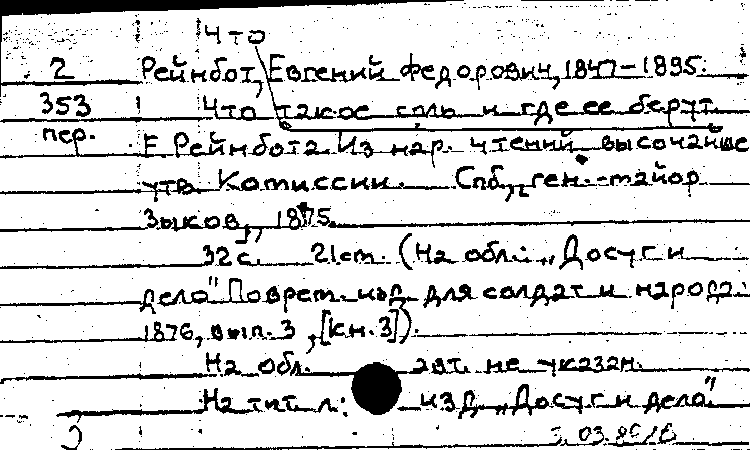 Что
2 Рейнбот, Евгений Федорович, 1847-1895.
353 Что такое соль и где ее берут.
пер. Е. Рейнбота. Из нар. чтений высочайше
утв. Комиссии. Спб., ген.-майор
Зыков, 1875.
32 с. 21 cm. (На обл.: „Досуг и
дело" Поврем. изд. для солдат и народа.
1876, вып. 3, [кн. 3]).
На обл. авт. не указан.
На тит. л.: изд. „Досуг и дело"